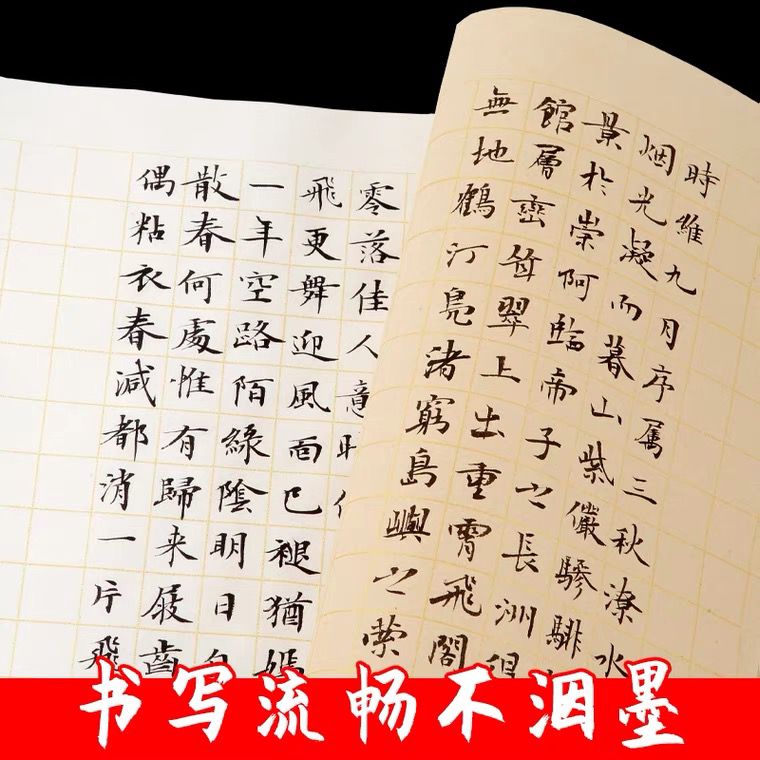 時維九月序属三秋潦水
烟光凝而暮山紫儼驂騑
景於崇阿臨帝子之長洲得
館層巒耸翠上出重霄飛閣
無地鶴汀鳧渚窮島嶼之縈
零落佳人意
飛更舞迎風面已褪猶嫣
一年空路陌綠陰明日
散春何處惟有歸来屐齒
偶粘衣春減都消一片飛
书写流畅不洇墨